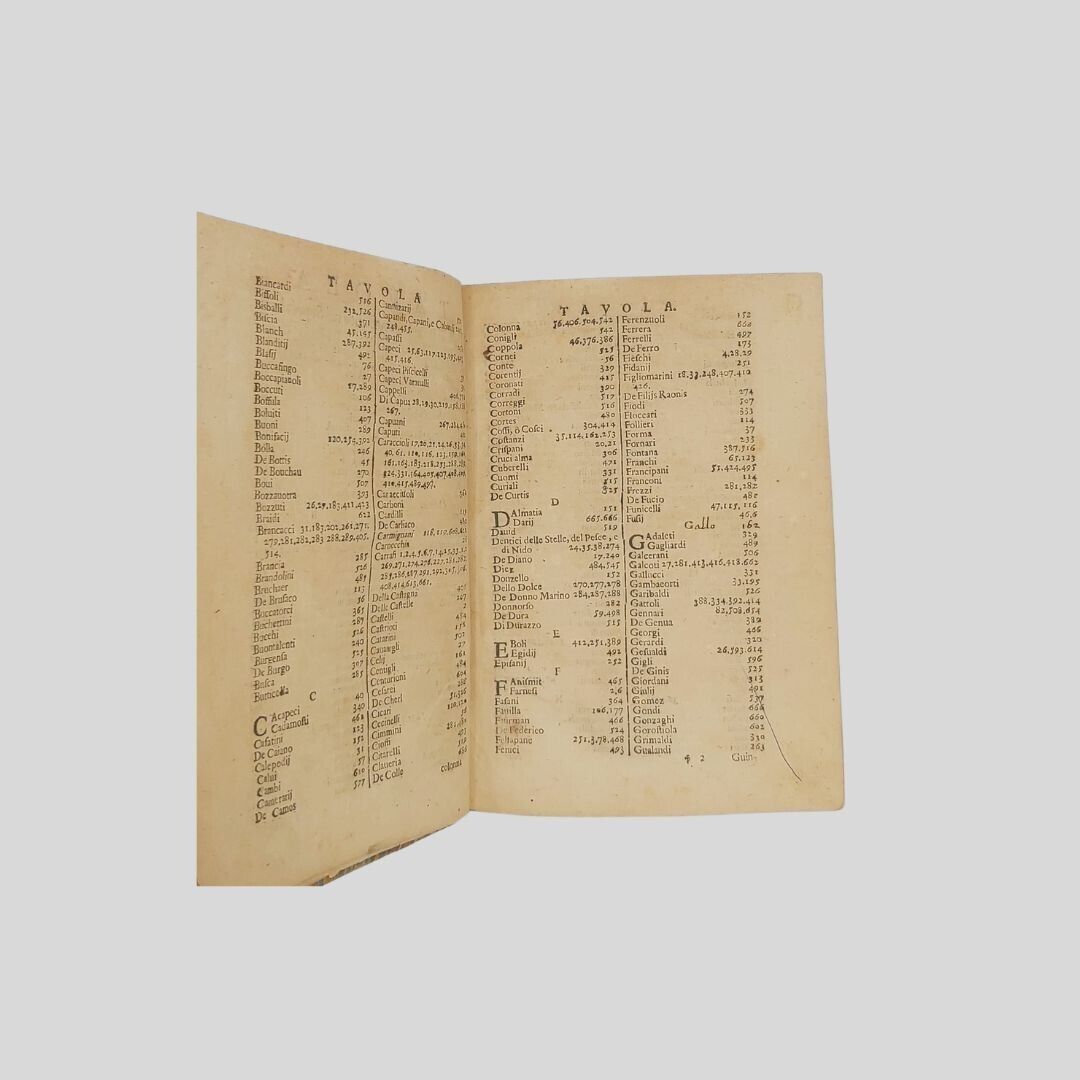 TAVOLA
Biancardi 516
Biffoli 232,526
Bisballi 371
Biscia 45,145
Blanch 287,392
Blanditij 492
Blasij 76
Buccafingo 27
Boccapianoli 17,289
Boccuti 106
Boffula 123
Boluiti 407
Buoni 289
Bonifacij 120,254,392
Bolia 246
De Bottis 45
De Bouchau 270
Boui 507
Bozzauotra 303
Bozzuti 26,29,183,411,423
Braidi 622
Brancacci 31,183,202,261,271,
279,281,282,283 288,289,405,
514.
Brancia 285
Brandolini 526
Bruchaer 485
De Brusaco 113
Buccatorci 36
Buchettini 365
Bucchi 287
Buontalenti 526
Burgensa 240
De Burgo 525
Busca 307
Butticella 285
C
CAcapeci 40
Cadamosti 340
Cafatini 461
De Caiano 123
Calepodij 152
Calui 31
Cambi 57
Camerarij 610
De Camos 577
Cannizarij
Capandi, Capani, e
248,455.
Capassi
Capeci 25,63,117,123,193,
425,426.
Capeci Piscicelli
Capeci Varanalli
Cappelli
Di Capua 28,29,30,219,258,
267.
Capuani 267,284
Caputi
Caraccioli 17,20,21,24,26,33,
40, 61, 110, 116, 123,
161,163,183,218,253,288,
324,331,364,405,407,408,
410,415,489,497.
Caracciuoli
Carboni
Cardilli
De Carluco
Carmignani 118,119,608
Carnecchia
Carrafi 1,2,4,5,6,7,14,25,33,
269,271,274,276,227,281,
285,286,287,291,292,
408,414,613,661.
Della Castagna 107
Delle Castelle 2
Castelli 484
Castrioti 158
Catarini 502
Cauargli 27
Celij 161
Cenugli 484
Centurioni 604
Cesarei 288
De Cherl 51,326
Cicari
Cecinelli
Cimmini 281
Cioffi 403
Citarelli 519
Claueria 686
De Colle
colonna
TAVOLA.
Colonna 56,406,504,542
Conigli 542
Coppola 46,376,386
Cornei 525
Conte 56
Corentij 329
Coronati 415
Corradi 390
Correggi 517
Cortoni 516
Cortes 480
Cossi, ò Cosci 304,414
Costanzi 35,114,162,253
Crispani 20,21
Cruci alma 306
Cuberelli 471
Cuomi 331
Curiali 515
De Curtis 325
D
DAlmatia 151
Darij 665,666
Dauid 519
Dentici delle Stelle, del Pesce, e
di Nido 24,35,38,274
De Diano 17,240
Diez 484,545
Donzello 152
Dello Dolce 270,277,278
De Donno Marino 284,287,288
Donnorso 282
De Dura 59,498
Di Durazzo 515
E
EBoli 412,251,389
Egidij 492
Episanij 252
F
FAnismit 465
Farnesi 2,6
Fasani 364
Fauilla 106,177
Fuirman 466
De Federico 524
Feltapane 251,3,78,468
Feruci 493
Ferenzuoli 152
Ferrera 660
Ferrelli 497
De Ferro 173
Fieschi 4,28,29
Fidanij 251
Figliomarini 18,33,248,407,412
426.
De Filijs Raonis 274
Fiodi 507
Floccari 333
Follieri 114
Forma 37
Fornari 233
Fontana 387,516
Franchi 65,123
Francipani 51,424,495
Franconi 114
Frezzi 281,282
De Fucio 480
Funicelli 47,115,116
Fusij 46,6
Gallo 162
GAdaleti 329
Gagliardi 489
Galeerani 506
Galeoti 27,281,413,416,418,662
Gallucci 331
Gambacorti 33,195
Garibaldi 526
Gattoli 388,334,392,414
Gennari 82,508,654
De Genua 382
Georgi 466
Gerardi 320
Gesualdi 26,593,614
Gigli 596
De Ginis 525
Giordani 313
Giulij 491
Gomez 537
Gondi 666
Gonzaghi 660
Gorostiola 602
Grimaldi 530
Gualandi 263
¶ 2 Guin-